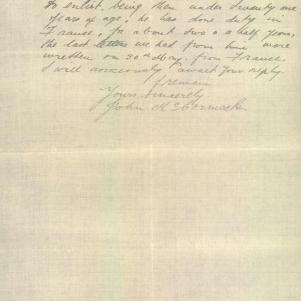 to enlist, being then under twenty one
years of age, he has done duty in
France, for about two & a half years,
the last letters we had from him were
wretten on 30th May, from France.
I will anxiously await your reply
I remain
Yours Sincerely
John McCormack